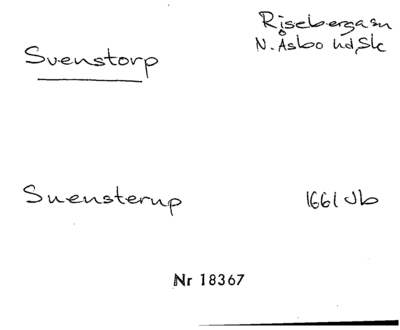 Svenstorp
Riseberga sn
N. Åsbo hd, Sk
Suensterup
1661 Jb
Nr 18367